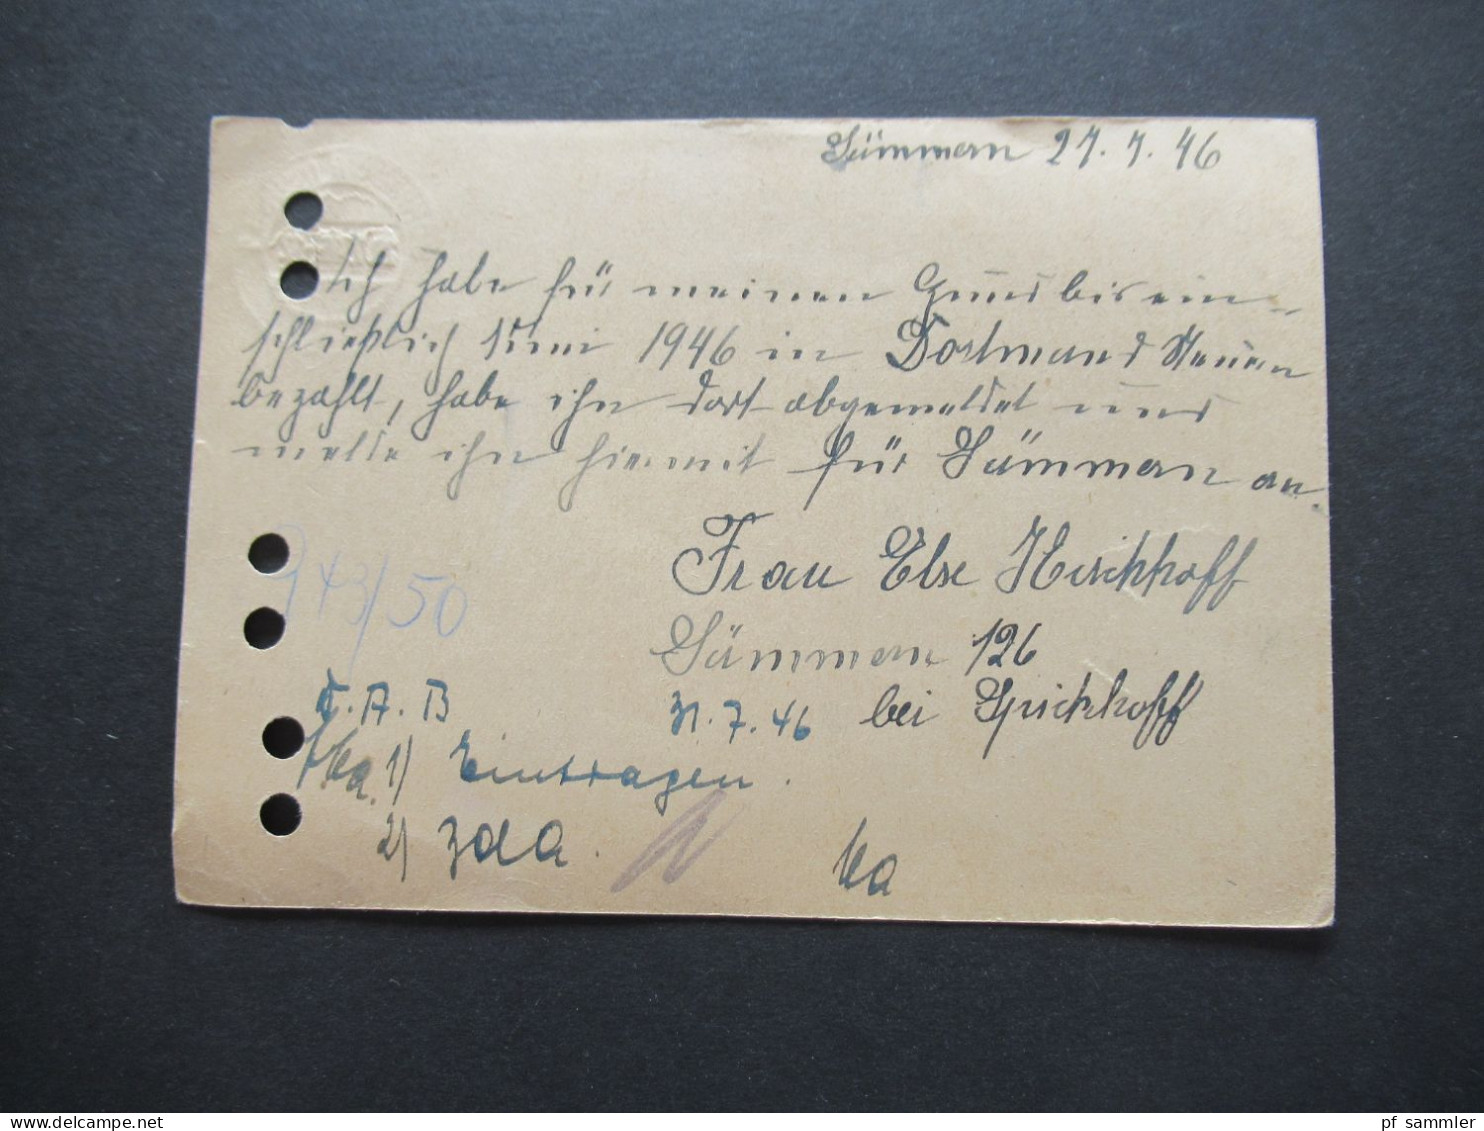 Sümmern 27.7.46
Ich habe für meinen Hund bis ein-
schließlich Juni 1946 in Dortmund Steuern
bezahlt, habe ihn dort abgemeldet und
melde ihn hiermit für Sümmern an.
Frau Else Hirschhoff
943/50
Sümmern 126
T.A.B 31.7.46 bei Spickhoff
1) Eintragen.
2) ZdA.
pf sammler
delcampe.net